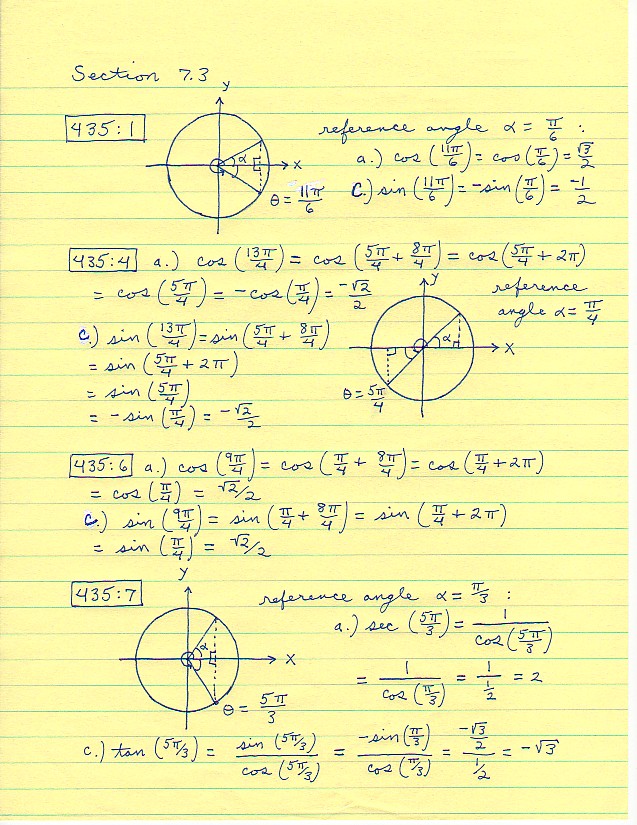 Section 7.3
435:1
y
x
α
θ = 11π/6
reference angle α = π/6 :
a.) cos (11π/6) = cos (π/6) = √3/2
c.) sin (11π/6) = -sin (π/6) = -1/2
435:4 a.) cos (13π/4) = cos (5π/4 + 8π/4) = cos (5π/4 + 2π)
= cos (5π/4) = -cos (π/4) = -√2/2
y
x
α
θ = 5π/4
reference
angle α = π/4
c.) sin (13π/4) = sin (5π/4 + 8π/4)
= sin (5π/4 + 2π)
= sin (5π/4)
= -sin (π/4) = -√2/2
435:6 a.) cos (9π/4) = cos (π/4 + 8π/4) = cos (π/4 + 2π)
= cos (π/4) = √2/2
c.) sin (9π/4) = sin (π/4 + 8π/4) = sin (π/4 + 2π)
= sin (π/4) = √2/2
435:7
y
x
α
θ = 5π/3
reference angle α = π/3 :
a.) sec (5π/3) = 1/cos (5π/3)
= 1/cos (π/3) = 1/(1/2) = 2
c.) tan (5π/3) = sin (5π/3)/cos (5π/3) = -sin (π/3)/cos (π/3) = (-√3/2)/(1/2) = -√3